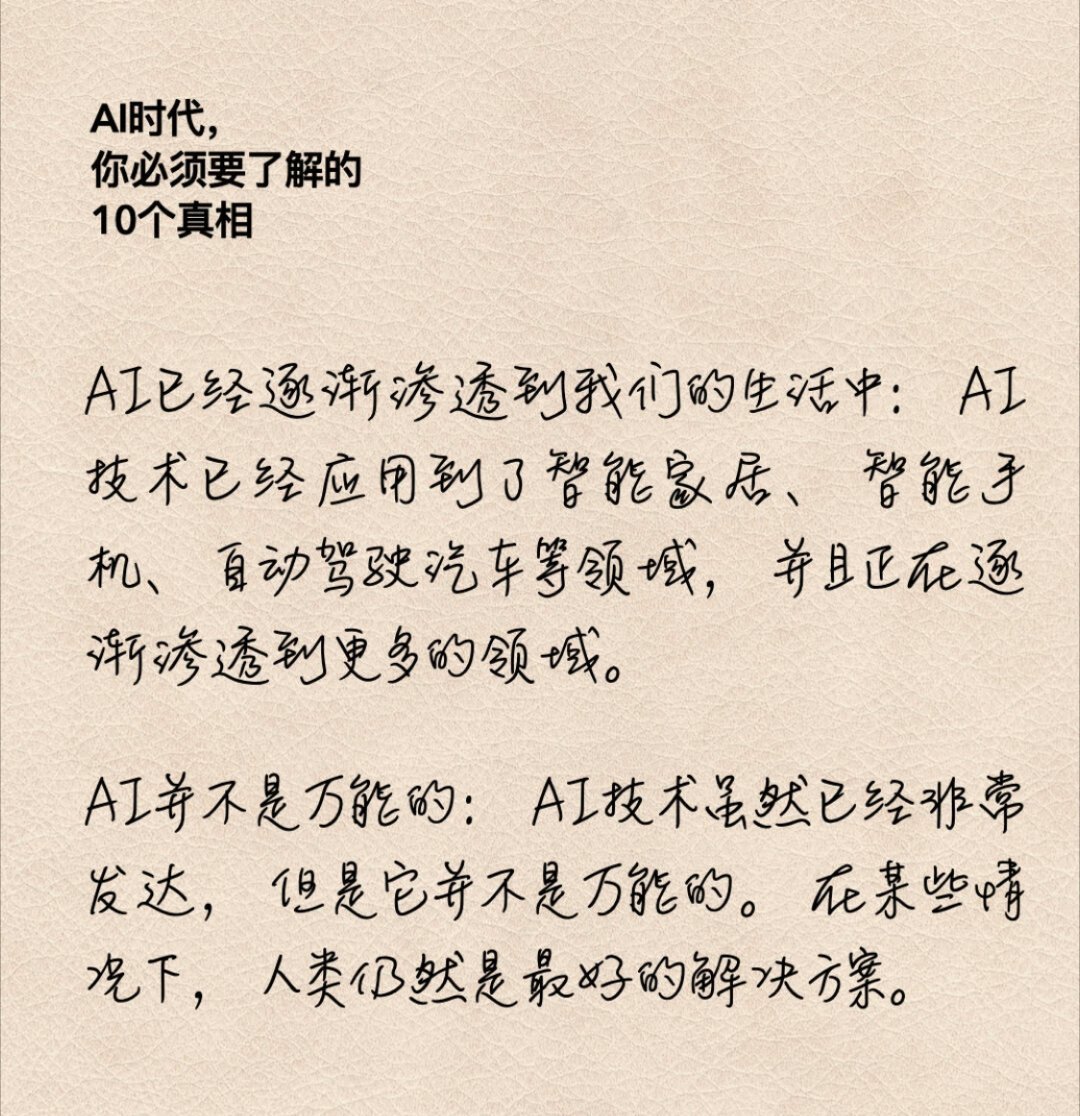 AI时代，
你必须要了解的
10个真相
AI已经逐渐渗透到我们的生活中： AI
技术已经应用到了智能家居、 智能手
机、 自动驾驶汽车等领域， 并且正在逐
渐渗透到更多的领域。
AI并不是万能的： AI技术虽然已经非常
发达， 但是它并不是万能的。 在某些情
况下， 人类仍然是最好的解决方案。